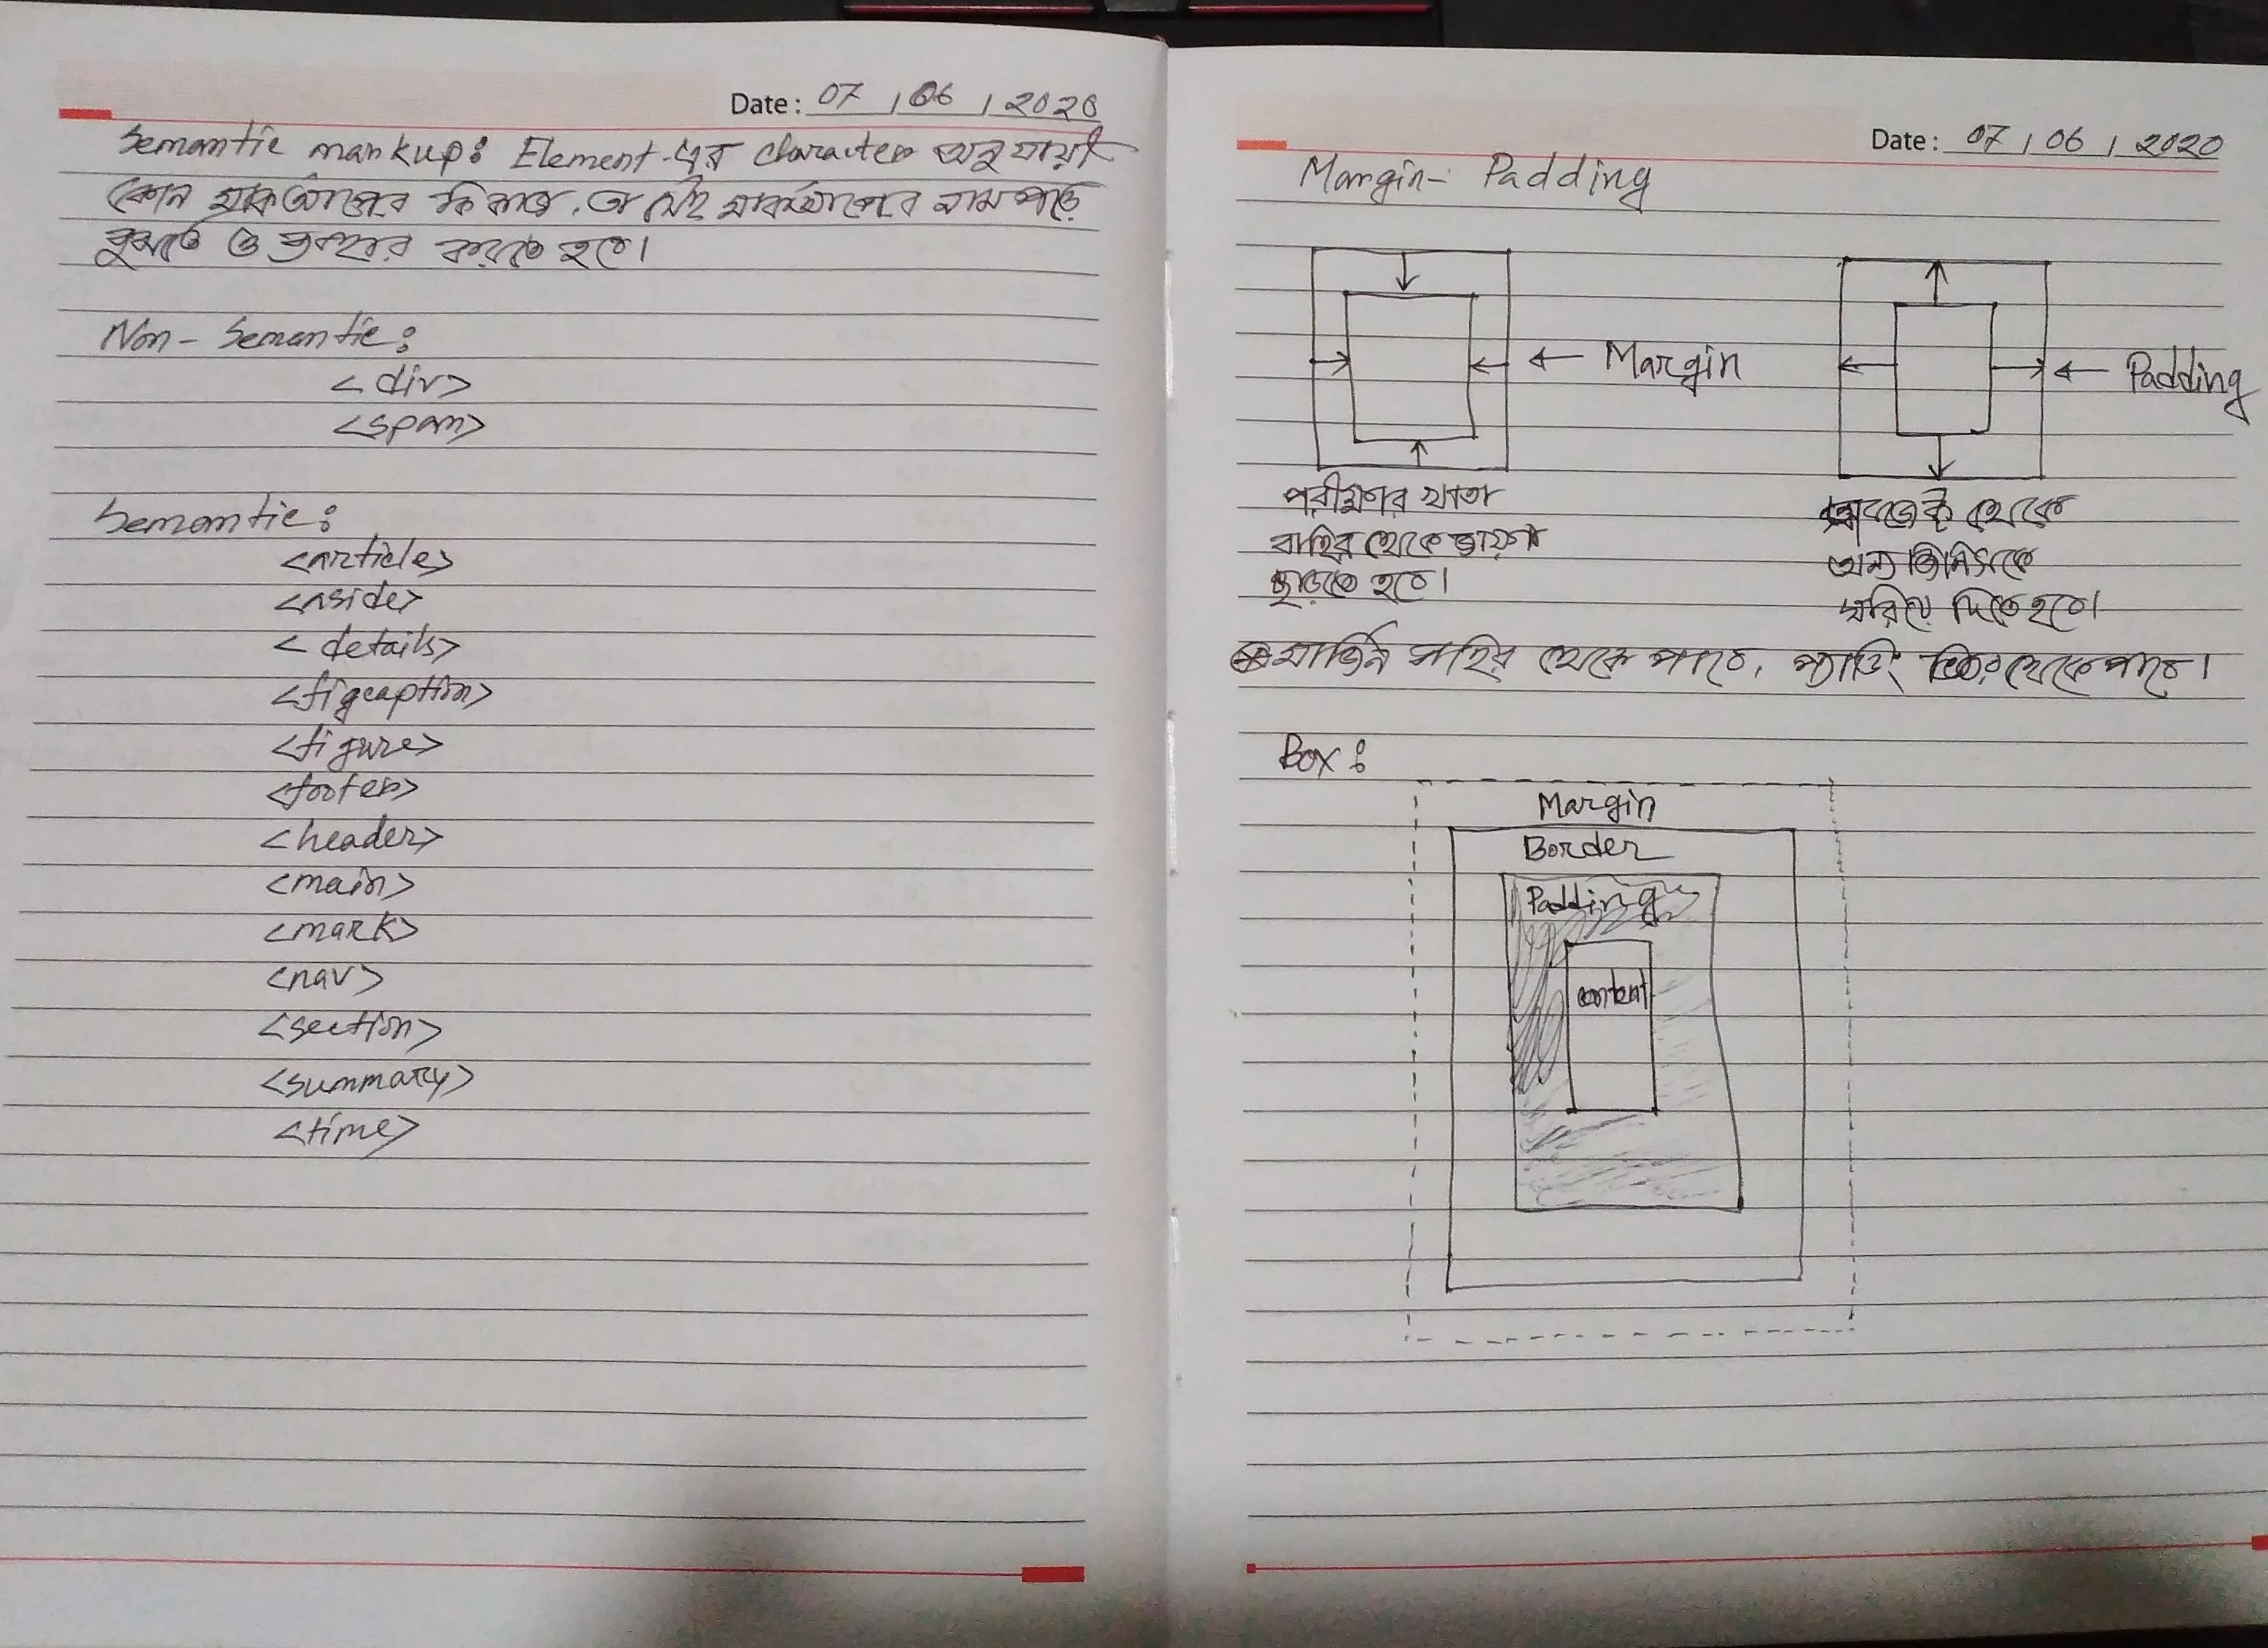 Date: 07 / 06 / 2020
Semantic markup: Element-এর character অনুযায়ী
কোন মার্কআপের কি কাজ, তা সেই মার্কআপের নাম পড়ে
বুঝতে ও ব্যবহার করতে হবে।
Non-Semantic:
<div>
<span>
Semantic:
<article>
<aside>
<details>
<figcaption>
<figure>
<footer>
<header>
<main>
<mark>
<nav>
<section>
<summary>
<time>
Date: 07 / 06 / 2020
Margin- Padding
← Margin
← Padding
পরীক্ষার খাতা
বাহির থেকে জায়গা
ছাড়তে হবে।
অবজেক্ট থেকে
অন্য জিনিসকে
সরিয়ে দিতে হবে।
মার্জিন বাহির থেকে পাবে, প্যাডিং ভিতর থেকে পাবে।
Box:
Margin
Border
Padding
content